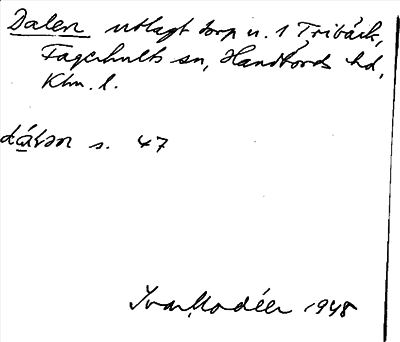 Dalen utlagt torp u. 1 Tribäck,
Fagerhults sn, Handbörds hd,
Klm. l.
dá̤lən s. 47
Ivar Modéer 1948